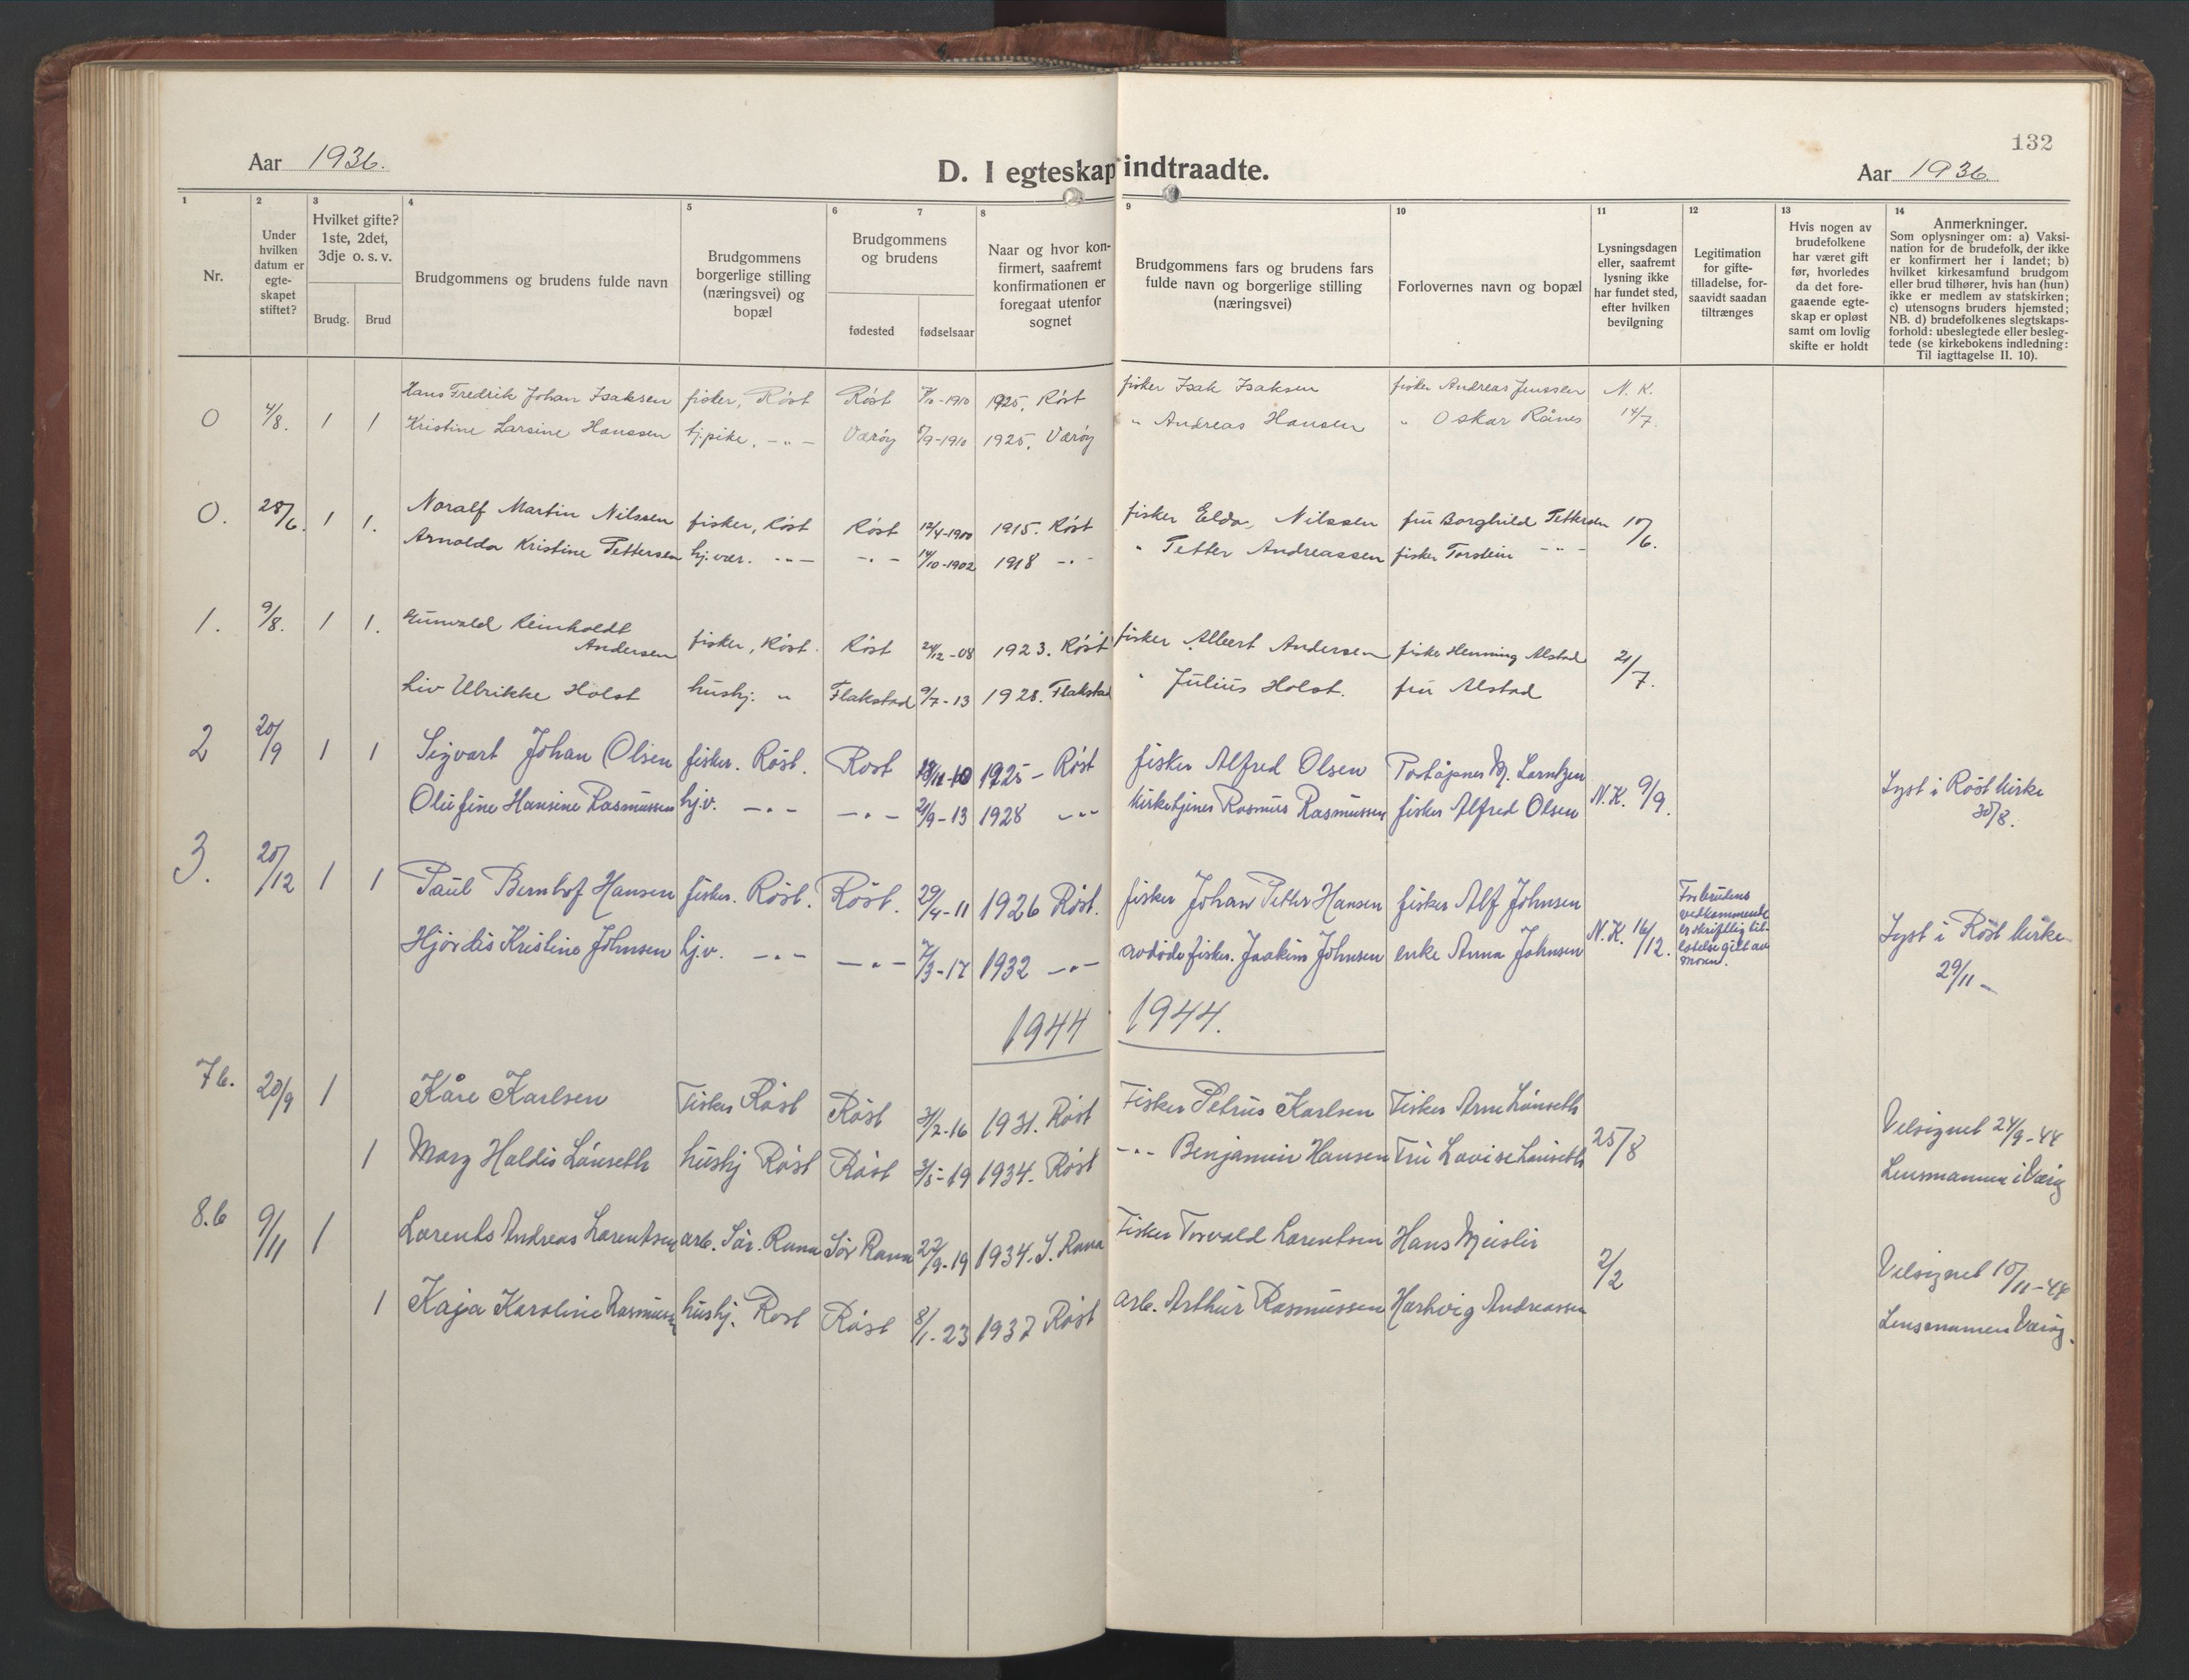 132
Aar 1936.
D. I egteskap indtraadte.
Aar 1936.
1
2
3
4
5
6
7
8
9
10
11
12
13
14
Nr.
Under
hvilken
datum er
egte-
skapet
stiftet?
Hvilket gifte?
1ste, 2det,
3dje o. s. v.
Brudg.
Brud
Brudgommens og brudens fulde navn
Brudgommens
borgerlige stilling
(næringsvei) og
bopæl
Brudgommens
og brudens
fødested
fødselsaar
Naar og hvor kon-
firmert, saafremt
konfirmationen er
foregaat utenfor
sognet
Brudgommens fars og brudens fars
fulde navn og borgerlige stilling
(næringsvei)
Forlovernes navn og bopæl
Lysningsdagen
eller, saafremt
lysning ikke
har fundet sted,
efter hvilken
bevilgning
Legitimation
for gifte-
tilladelse, for-
saavidt saadan
tiltrænges
Hvis nogen av
brudefolkene
har været gift
før, hvorledes
da det fore-
gaaende egte-
skap er opløst
samt om lovlig
skifte er holdt
Anmerkninger.
Som oplysninger om: a) Vaksi-
nation for de brudefolk, der ikke
er konfirmert her i landet; b)
hvilket kirkesamfund brudgom
eller brud tilhører, hvis han (hun)
ikke er medlem av statskirken;
c) utensogns bruders hjemsted;
NB. d) brudefolkenes slegtskaps-
forhold: ubeslegtede eller besleg-
tede (se kirkebokens indledning:
Til iagttagelse II. 10).
Hans Fredrik Johan Isaksen fisker, Röst Röst 1910 1925, Röst fisker Isak Isaksen fisker Andreas Jenssen N. K.
0 4/8. 1 1 Kristine Larsine Hanssen hj.pike, -"- Værøy /9-1910 1925, Værøy " Andreas Hansen " Oskar Rånes 14/7
0. 28/6. 1 1. Noralf Martin Nilssen fisker, Röst Röst 12/4-1900 1915. Röst fisker Eldor Nilssen fru Borghild Pettersen 10/6.
Arnolda Kristine Pettersen hj.vær. -"- -"- 14/10-1902 1918 -"- " Petter Andreassen fisker Torstein -"-
1. 9/8. 1 1. Gunvald Reinholdt
Andersen fisker, Röst. Röst 24/12-08 1923. Röst fisker Albert Andersen fisker Henning Alstad 21/7.
Liv Ulrikke Holst hushj. " Flakstad 9/7-13 1928. Flakstad " Julius Holst. fru Alstad
2 20/9 1 1 Sigvart Johan Olsen fisker. Röst. Röst 18/11-10 1925 - Röst fisker Alfred Olsen Poståpner M. Lorntzen
Olufine Hansine Rasmussen hj.v. -"- -"- 21/9-13 1928 -"- Kirketjener Rasmus Rasmussen fisker Alfred Olsen N.K. 9/9. Lyst i Röst kirke
30/8.
3. 20/12 1 1 Paul Bernhof Hansen fisker. Röst. Röst. 29/4-11 1926 Röst. fisker Johan Petter Hansen fisker Alf Johnsen
Hjördis Kristine Johnsen hj.v. -"- -"- 7/3-17 1932 -"- avdöde fisker. Joakim Johnsen enke Anna Johnsen N.K. 16/12.
For brudens
vedkommende
er skriftlig til-
latelse gitt av
moren.
Lyst i Röst kirke
29/11 -
1944 1944.
7b. 20/9 1 Kåre Karlsen Fisker Röst Röst 3/2-16 1931. Röst Fisker Petrus Karlsen Fisker Arne Lånseth
1 Mary Haldis Lånseth hushj Röst Röst 3/5-19 1934. Röst -"- Benjamin Hansen Fru Lovise Lånseth 25/8
Velsignet 24/9-44
Lensmannen i Værøy
8.b 9/11 1 Lorents Andreas Lorentsen arb. Sör. Rana Sör Rana 22/9-19 1934. S. Rana Fisker Torvald Lorentsen Hans Meisler
2/2
1 Kaja Karoline Rasmussen hushj. Röst Röst 8/1. 23 1937 Röst arb. Arthur Rasmussen Harhvig Andreassen
Velsignet 10/11-44
Lensmannen Værøy.